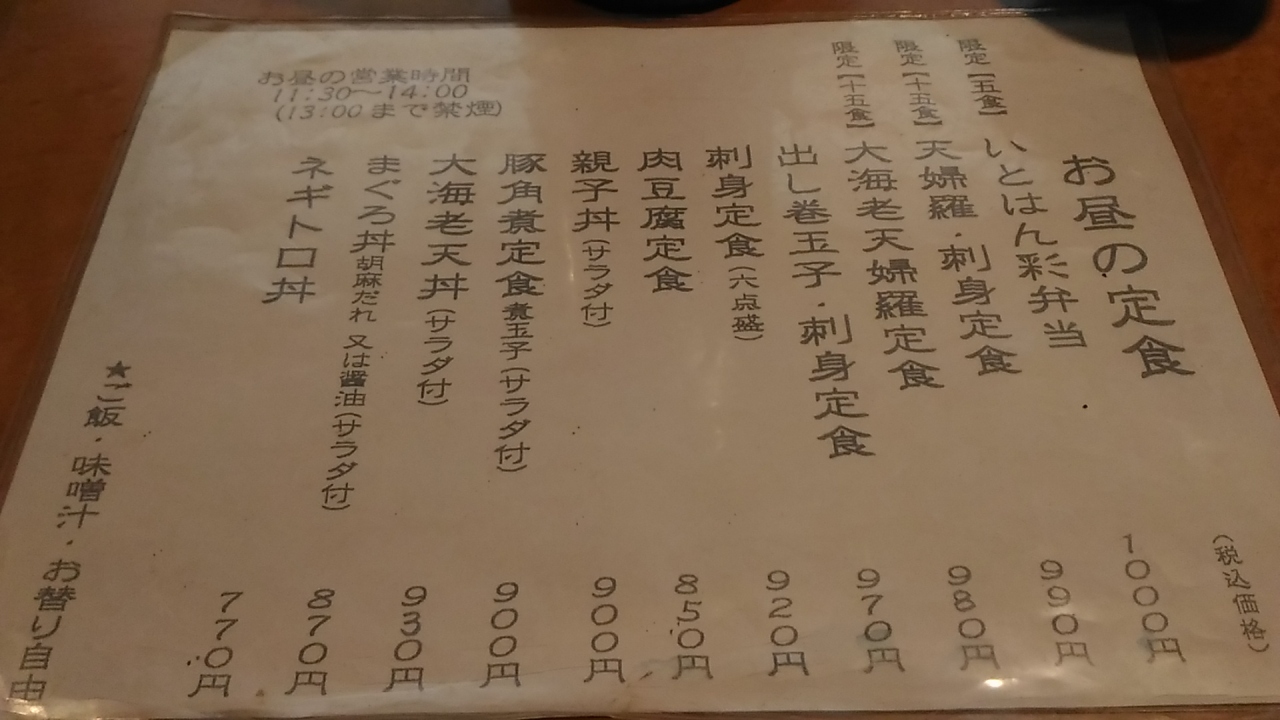 お昼の定食
(税込価格)
限定【五食】 いとはん彩弁当 1000円
限定【十五食】 天婦羅・刺身定食 990円
限定【十五食】 大海老天婦羅定食 980円
出し巻玉子・刺身定食 970円
刺身定食(六点盛) 920円
肉豆腐定食 850円
親子丼(サラダ付) 900円
豚角煮定食 煮玉子(サラダ付) 900円
大海老天丼(サラダ付) 930円
まぐろ丼 胡麻だれ 又は醤油(サラダ付) 870円
ネギトロ丼 770円
お昼の営業時間
11:30～14:00
(13:00まで禁煙)
★ご飯・味噌汁・お替り自由